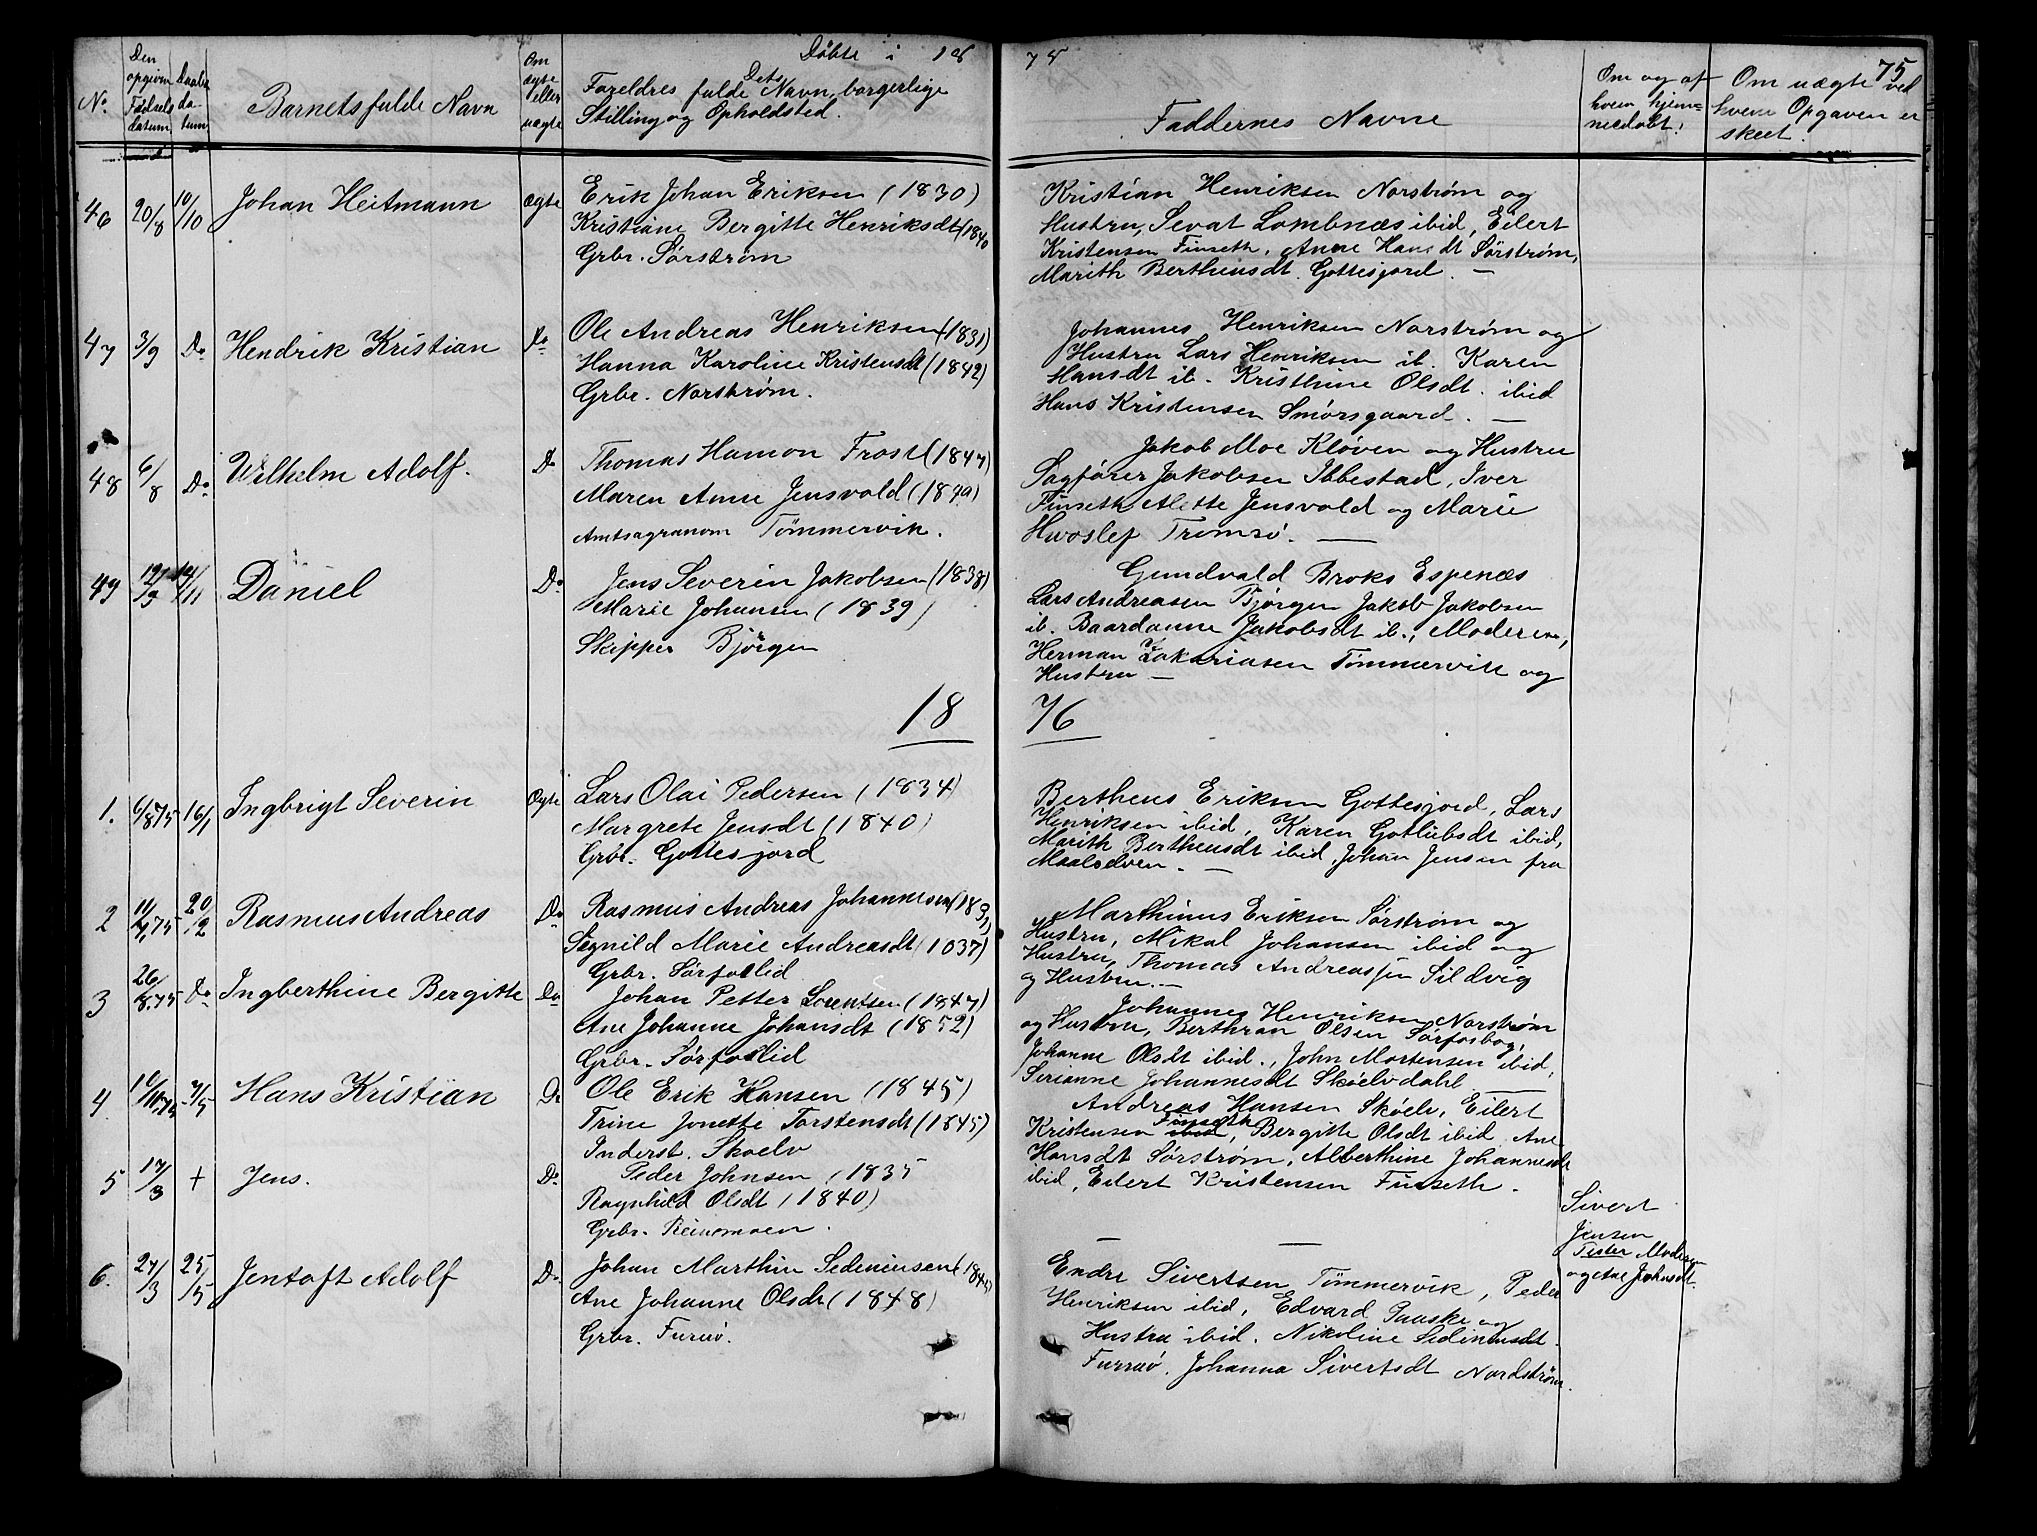 Døbte i 18 75
75
No.
Den opgivne Fødselsdatum
Daabsdatum
Barnets fulde Navn
Om ægte eller uægte
Dets
Foreldres fulde Navn, borgerlige
Stilling og Opholdsted.
Faddernes Navne
Om og af
hvem hjemmedøbt.
Om uægte ved
hvem Opgaven er
skeet.
46 20/8 10/10 Johan Heitmann ægte
Erik Johan Eriksen (1830)
Kristiane Bergitte Henriksdt (1840
Grbr. Sörstrøm
Kristian Henriksen Norstrøm og
Hustru, Sevat Lombnæs ibid, Eilert
Kristensen Finseth, Anne Hansdt Sörstrøm,
Marith Bertheusdt. Gottesjord. —
47 3/9 Do Hendrik Kristian Do
Ole Andreas Henriksen (1831)
Hanna Karoline Kristensdt (1842)
Grbr. Norstrøm.
Johannes Henriksen Norstrøm og
Hustru Lars Henriksen ib. Karen
Hansdt ib. Kristhine Olsdt. ibid
Hans Kristensen Smörsgaard. —
48 6/8 Do Wilhelm Adolf. Do
Thomas Hamon Frost (1847)
Maren Anne Jensvold (1849)
Amtsagronom Tömmervik.
Jakob Moe Kløven og Hustru
Sagförer Jakobsen Ibbestad, Iver
Finseth, Alette Jensvold og Marie
Hvoslef Tromsö. —
49 12/9 14/11 Daniel Do
Jens Severin Jakobsen (1838)
Marie Johansen (1839)
Skipper Bjørgen
Gundvald Broks Espenæs
Lars Andreasen Bjørgen Jakob Jakobsen
ib. Baardanne Jakobsdt ib., Moderen,
Herman Zakariasen Tömmervik og
Hustru —
18 76
1. 6/8 75 16/1 Ingbrigt Severin Ægte
Lars Olai Pedersen (1834)
Margrete Jensdt (1840)
Grbr. Gottesjord
Bertheus Eriksen Gottesjord, Lars
Henriksen ibid, Karen Gotliebsdt ibid,
Marith Bertheusdt ibid, Johan Jensen fra
Maalselven. —
2 75 20/2 Rasmus Andreas Do
Rasmus Andreas Johannesen (183
Segnild Marie Andreasdt (1037)
Grbr. Sörfoslid
Marthinus Eriksen Sörstrøm og
Hustru, Mikal Johansen ibid og
Hustru, Thomas Andreassen Sildvig
og Hustru. —
3 26/8.75 Do Ingberthine Bergitte Do
Johan Petter Lorentsen (1847)
Ane Johanne Johansdt (1852)
Grbr. Sörfoslid
Johannes Henriksen Norstrøm
og Hustru, Berthran Olsen Sörfosbog,
Johanne Olsdt ibid., John Mortensen ibid,
Serianne Johannesdt Sköelvdahl
4 7/5 Hans Kristian Do
Ole Erik Hansen (1845)
Trine Jonette Torstensdt (1845)
Inderst. Skoelv
Andreas Hansen Sköelv, Eilert
Kristensen Finseth, Bergitte Olsdt ibid, Ane
Hansdt Sörstrøm, Alberthine Johannesdt
ibid, Eilert Kristensen Finseth.
5 17/3 + Jens. Do
Peder Johnsen (1835
Ragnhild Olsdt (1840)
Grbr. Reinsmoen.
—
Sivert
Jensen
Moderen
og Ane Johnsdt.
6. 27/3 25/5 Jentoft Adolf Do
Johan Marthin Sedeniusen (184
Ane Johanne Olsdt (1848)
Grbr. Furuö.
Endre Sivertsen Tömmervik, Peder
Henriksen ibid, Edvard Paaske og
Hustru ibid. Nikoline Sedeniusdt.
Furruö. Johanna Sivertsdt Nordstrøm.